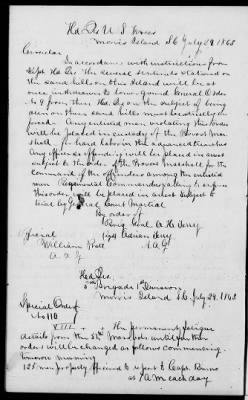 Hd Qrs U S Forces
Morris Island S C July 29 1863
Circular
In accordance with instructions from
Dept Hd Qrs the several sentinels stationed on
the sand hills on this Island will be at
once withdrawn to lower ground General Order
No 9 from these Hd Qrs on the subject of being
seen on these sand hills must be strictly en
forced. Any enlisted men violating this order
will be placed in custody of the Provost Mar
shall for hard labor in the advanced trenches
Any officers offending will be placed in arrest
subject to the order of the Provost Marshall for the
command of the offenders among the enlisted
men Regimental Commanders failing to enforce
this order will be placed in arrest subject to
trial by General Court Martial
By order of
Brig Genl A. H. Terry
Signed Adrian Terry
A. A. G
Official
William
A A G
Head Qrs
Brigade 1st Division
Morris Island S.C. July 29, 1863
Special Order
No 110
VIII. The permanent fatigue
details from the 54th Mass Vols until further
orders will be changed as follows commencing
tomorrow morning
125 men properly officered to report to Capt. Burns
at 7 A M each day